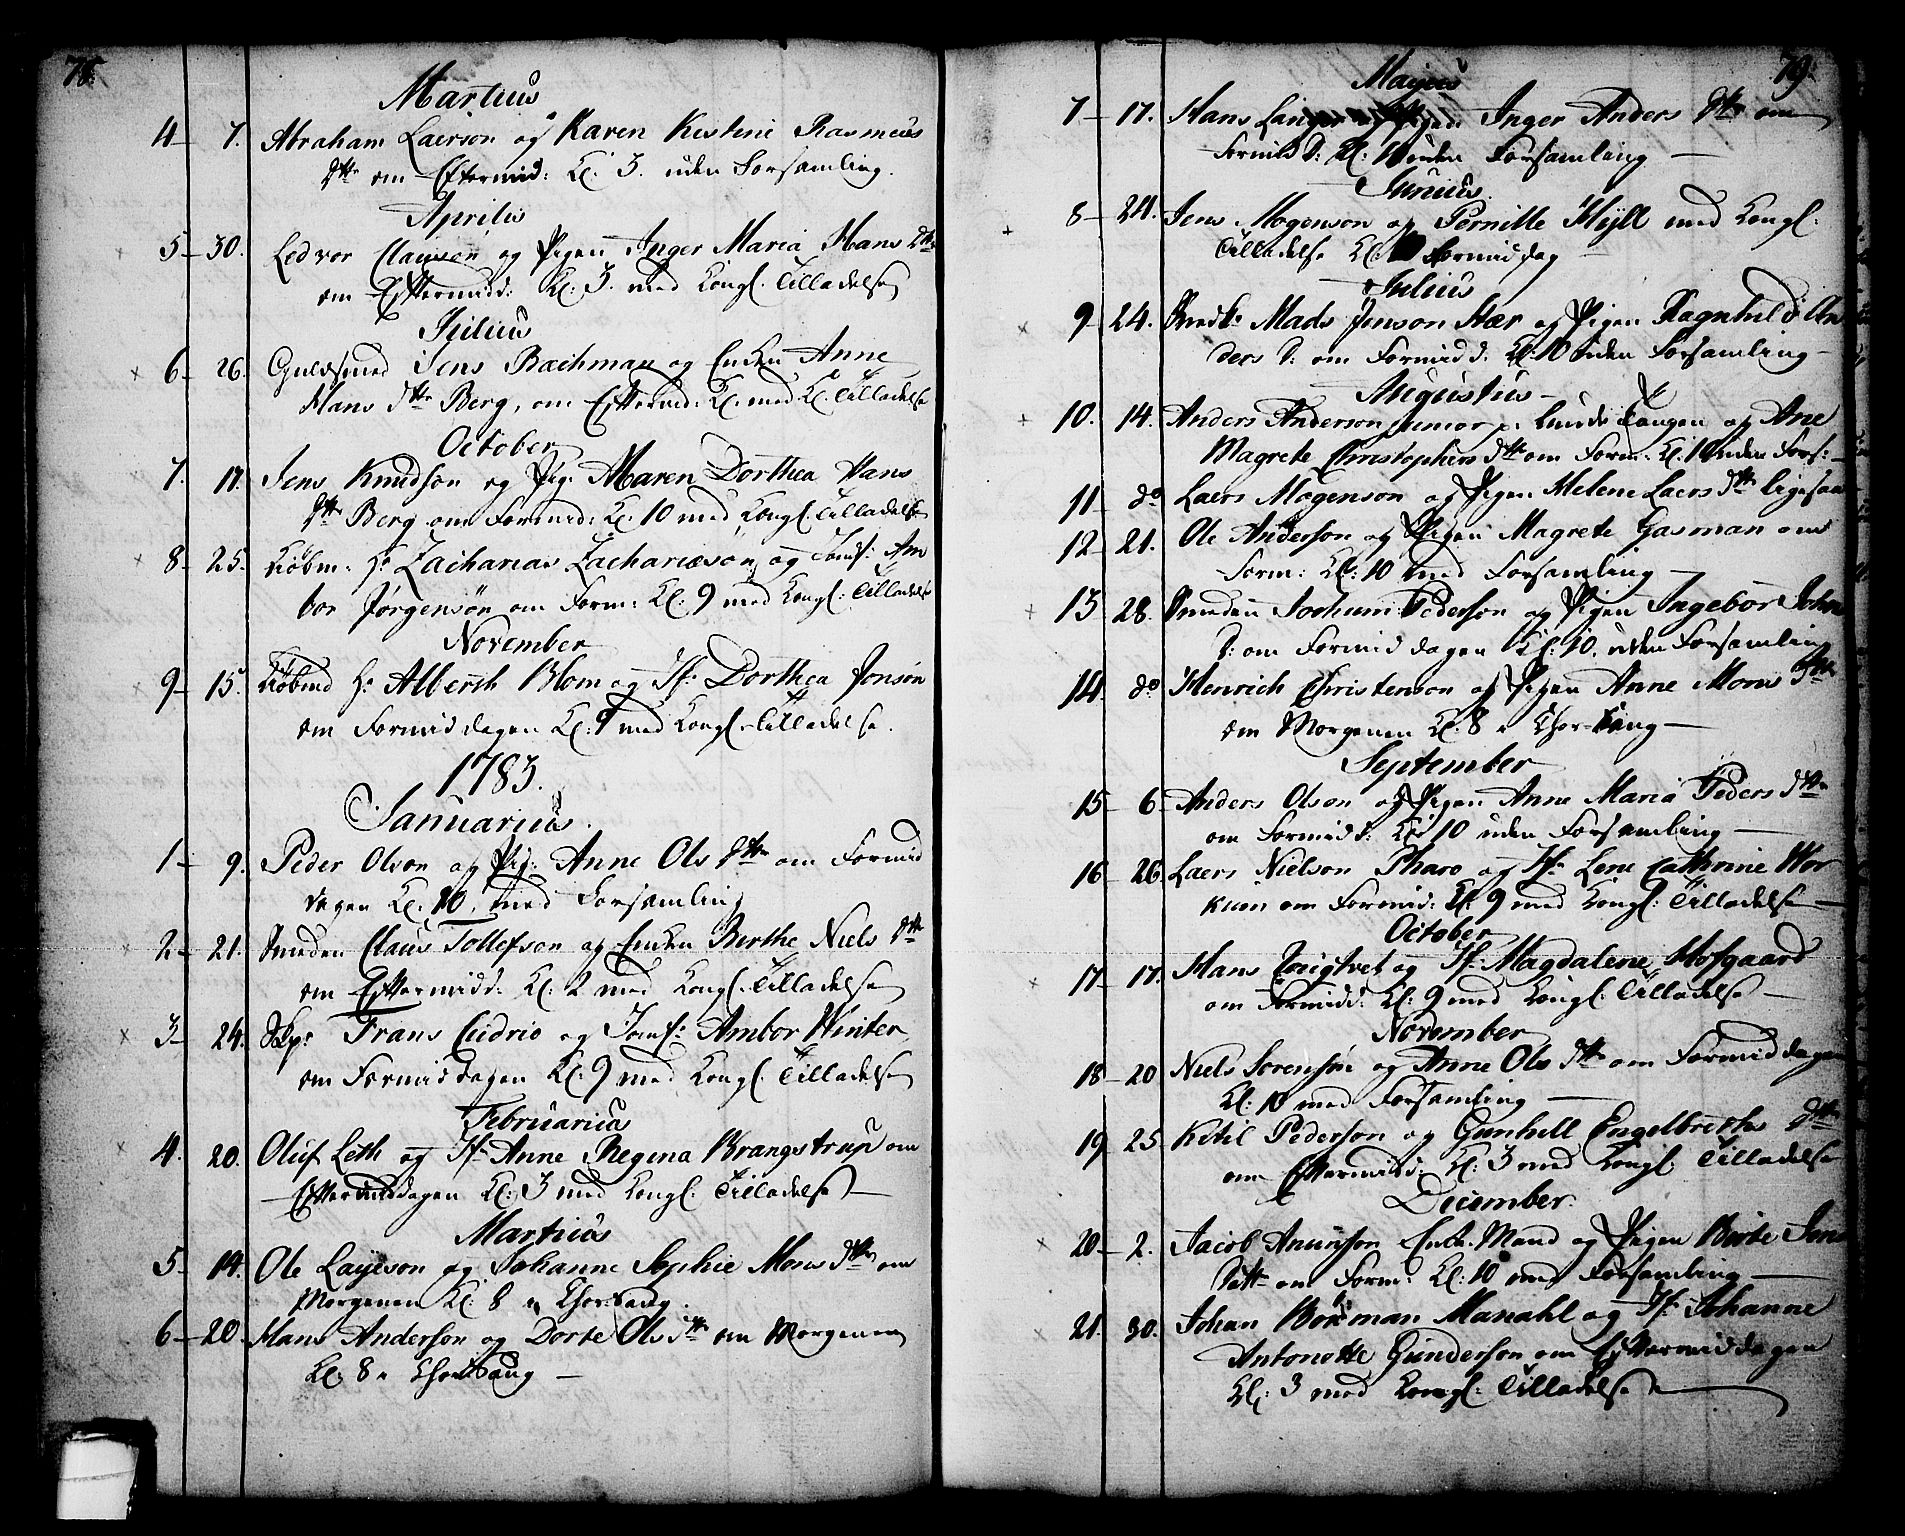 78.
Martius
4 – 7. Abraham Laerson og Karen Kistine Rasmus
dttr om Eftermid: Kl. 3. uden Forsamling.
Aprilis
5 – 30. Ledvor Clausen og Pigen Inger Maria Hans dttr
om Eftermidd: Kl. 3. med Kongl. Tilladelse
Julius
6 – 26. Guldsmed Jens Bachman og Enken Anne
Hans dttr Berg, om Eftermid: Kl. med K. Tilladelse
October
7. 17. Jens Knudson og Pig: Maren Dorthea Hans
dttr Berg om Formid: Kl. 10 med Kongl. Tilladelse
8 – 25. Kiøbm: Hr Zacharias Zachariæsøn og Jomf: Am
bor Jørgensøn om Form: Kl: 9 med Kongl: Tilladelse
November
9 – 15. Kiøbmd Hr Albersh Blom og Jfr Dorthea Jonsøn
om Formiddagen Kl. 9 med Kongl. Tilladelse.
1783.
Januarius.
1 – 9. Peder Olson og Pig: Anne Ols dttr om Formid
dagen Kl. 10, med Forsamling
2 – 21. Smeden Claus Tollefson og Enken Berthe Niels dttr
om Eftermidd: Kl: 2 med Kongl. Tilladelse
3 – 24. Skpr Frans Cudrio og Jomf: Ambor Winter,
om Formiddagen Kl. 9 med Kongl. Tilladelse
Februarius
4. 20. Oluf Leth og Jfr Anne Regina Brangstrup om
Eftermiddagen Kl: 3 med Kongl. Tilladelse
Martius
5 – 14. Ole Layeson og Johanne Sophie Mons dttr om
Morgenen Kl: 8 i Chorsang.
6 – 20. Hans Anderson og Dorte Ols dttr om Morgenen
Kl: 8 i Chorsang –
79.
Majus
7 – 17. Hans Pigen Inger Anders dttr om
Formidd: Kl: 10 uden Forsamling –
Junius.
8 – 24. Jens Mogenson og Pernille Kyll med Kongl.
Tilladelse Kl. Formiddag
Julius
9 – 24. Smedk: Mads Jenson Stær og Pigen Ragnhild An
ders D: om Formidd: Kl: 10 uden Forsamling –
Augustus –
10. 14. Anders Anderson junior Tangen og Ane
Magrete Christophers dttr om Form: Kl. 10 uden Fors: –
11 – do Laers Mogenson og Pigen Helene Laers dttr ligesaa
12 – 21. Ole Anderson og Pigen Magrete Gasman om
Form: Kl: 10 med Forsamling –
13 28. Smeden Jochum Pederson og Pigen Ingebor Johns
D: om Formiddagen Kl: 10. uden Forsamling
14. do Henrich Christenson og Pigen Anne Mons dttr
om Morgenen Kl: 8 i Chorsang –
September
15 6 – Anders Olson og Pigen Anne Maria Peders dttr
om Formidd: Kl 10 uden Forsamling –
16 – 26 Laers Nielson Pharo og Jfr Lene Cathrine Wor
kuin om Formid: Kl. 9 med Kongl: Tilladelse –
October
17 – 17. Hans Tvigtvet og Jfr Magdalene Hofgaard
om Formidd: Kl: 9 med Kongl. Tilladelse –
November
18 – 20 Niels Sorensøn og Anne Ols dttr om Formiddagen
Kl: 10 med Forsamling –
19 25. Ketil Pederson og Gunhell Engelbreths dttr
om Eftermidd: Kl: 3 med Kongl. Tilladelse
December.
20 – 2. Jacob Anunson Enke Mand og Pigen Birte Jens
Datt om Form: Kl: 10 med Forsamling –
21. 30. Johan Borman Manahl og Jfr Johanne
Antonette Gunderson om Eftermiddagen
Kl: 3 med Kongl: Tilladelse